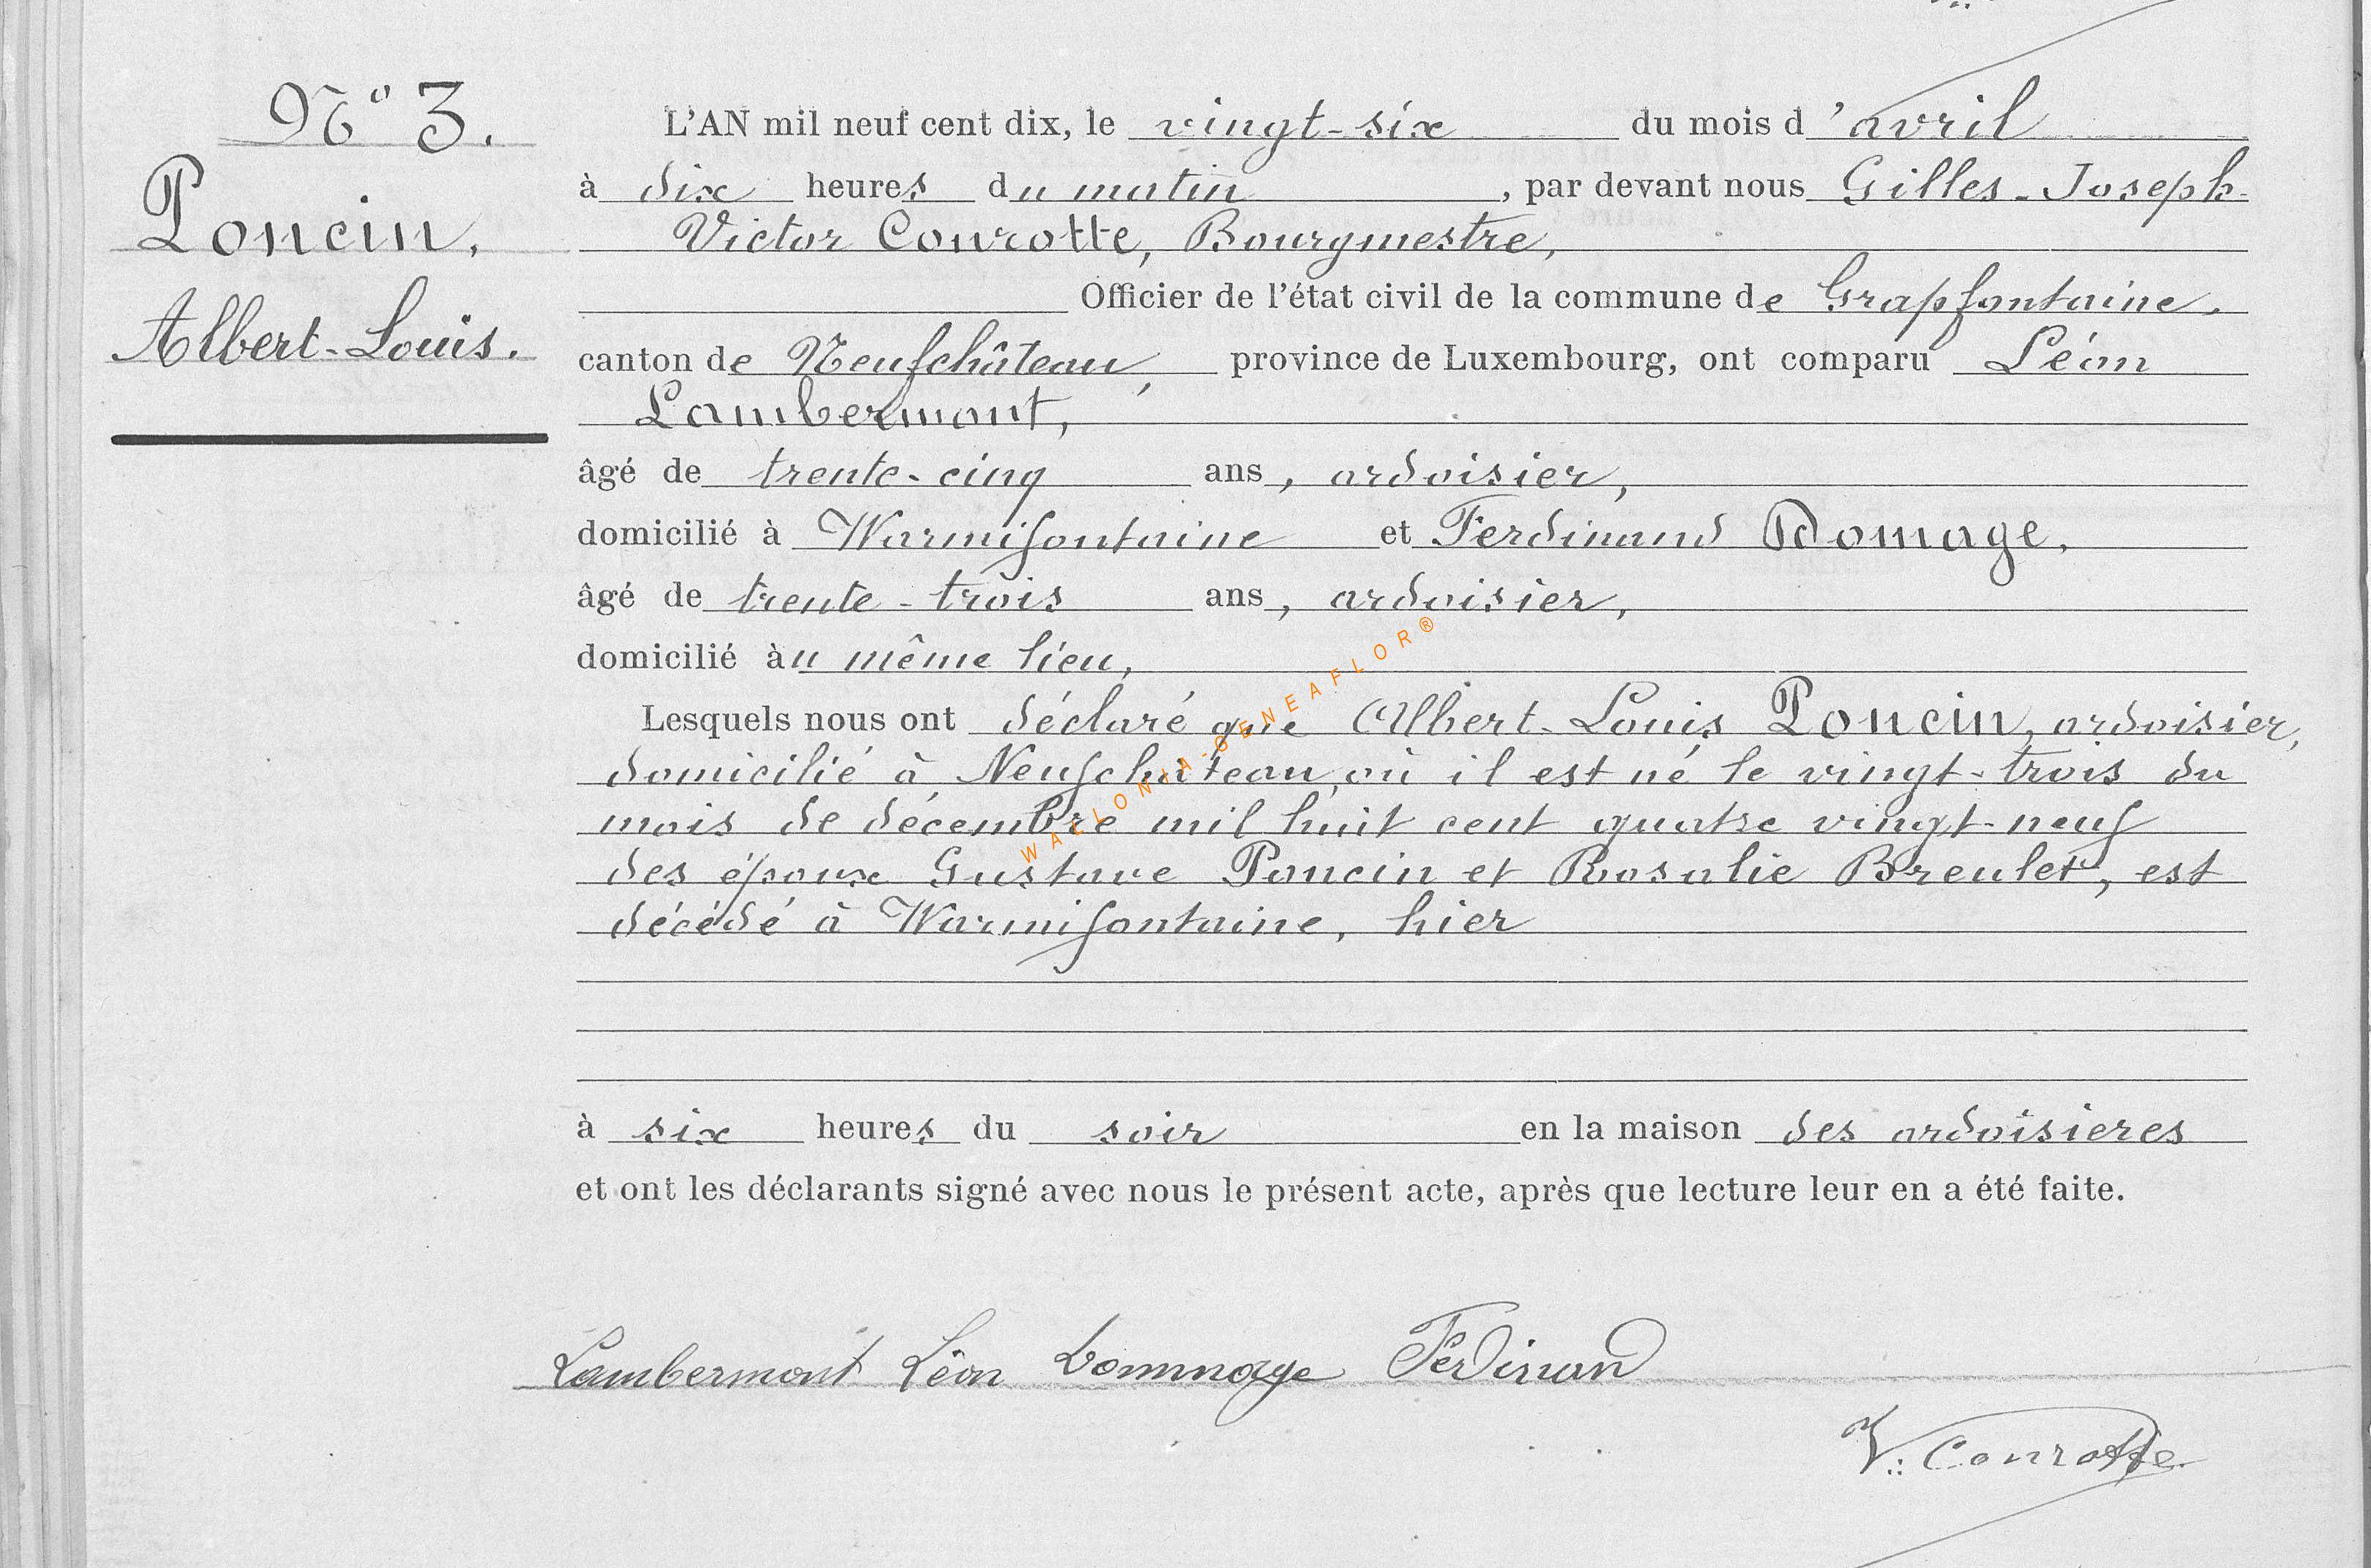 N° 3.
Poncin,
Albert-Louis.
L'AN mil neuf cent dix, le vingt-six du mois d'avril
à dix heures du matin, par devant nous Gilles-Joseph-
Victor Conrotte, Bourgmestre,
Officier de l'état civil de la commune de Grapfontaine,
canton de Neufchâteau, province de Luxembourg, ont comparu Léon
Lambermont,
âgé de trente-cinq ans, ardoisier,
domicilié à Warmifontaine et Ferdinand Domage,
âgé de trente-trois ans, ardoisier,
domicilié au même lieu,
Lesquels nous ont déclaré que Albert-Louis Poncin, ardoisier,
domicilié à Neufchâteau, où il est né le vingt-trois du
mois de décembre mil huit cent quatre vingt-neuf
des époux Gustave Poncin et Rosalie Breulet, est
décédé à Warmifontaine, hier
à six heures du soir en la maison des ardoisieres
et ont les déclarants signé avec nous le présent acte, après que lecture leur en a été faite.
Lambermont Léon Dommage Ferdinand
V. Conrotte
WALLONIA-GENEAFLOR®